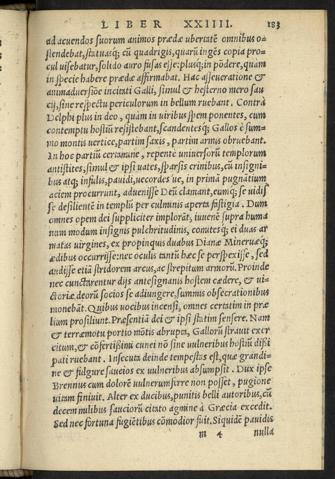 LIBER XXIIII. 183
ad acuendos suorum animos prædæ ubertatẽ omnibus o-
stendebat, statuasq; cũ quadrigis, quarũ ingẽs copia pro-
cul uisebatur, solido auro fusas esse: plusq; in põdere, quam
in specie habere prædæ affirmabat. Hac asseueratione &
animaduersiõe incitati Galli, simul & hesterno mero sau
cij, sine respectu periculorum in bellum ruebant. Contrà
Delphi plus in deo, quàm in uiribus spem ponentes, cum
contemptu hostiũ resistebant, scandentesq; Gallos è sum-
mo montis uertice, partim saxis, partim armis obruebant.
In hoc partiũ certamine, repente uniuersorũ templorum
antistites, simul & ipsi uates, sparsis crinibus, cũ insigni-
bus atq; infulis, pauidi, uecordes ue, in primã pugnãtium
aciem procurrunt, aduenisse Deũ clamant, eumq; se uidisse
se desilientẽ in templũ per culminis aperta fastigia. Dum
omnes opem dei suppliciter implorãt, iuuenẽ supra huma
num modum insignis pulchritudinis, comitesq; ei duas ar
matas uirgines, ex propinquis duabus Dianæ Mineruæq;
ædibus occurrisse: nec oculis tantũ hæc se perspexisse, sed
audisse etiã stridorem arcus, ac strepitum armorũ. Proinde
nec cunctarentur dijs antesignanis hostem cædere, & ui-
ctoriæ deorũ socios se adiungere, summis obsecrationibus
monebãt. Quibus uocibus incensi, omnes certatim in præ
lium prosiliunt. Præsentiã dei & ipsi statim sensere. Nam
& terræmotu portio mõtis abrupta, Gallorũ strauit exer
citum, & cõfertissimi cunei nõ sine uulneribus hostiũ dissi
pati ruebant. Insecuta deinde tempestas est, quæ grandi-
ne & fulgure saucios ex uulneribus absumpsit. Dux ipse
Brennus cum dolorẽ uulnerum ferre non posset, pugione
uitam finiuit. Alter ex ducibus, punitis belli autoribus, cũ
decem milibus sauciorũ citato agmine à Græcia excedit.
Sed nec fortuna fugiẽtibus cõmodior fuit. Siquidẽ pauidis
m 4 nulla